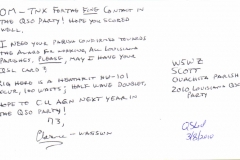 OM - TNX FOR THE FINE CONTACT IN
THE QSO PARTY! HOPE YOU SCORED
WELL,
I NEED YOUR PARISH TOWARDS
THE AWARD FOR WORKING ALL LOUISIANA
PARISHES, PLEASE, MAY I HAVE YOUR
QSL CARD?
RIG HERE IS A HEATHKIT HW-101
100 WATTS; HALF WAVE DOUBLET,
HOPE TO C U AGN NEXT YEAR IN
THE QSO PARTY!
73,
W5WZ
SCOTT
OUACHITA PARISH
2010 LOUISIANA QSO
PARTY
QSLed
3/8/2010